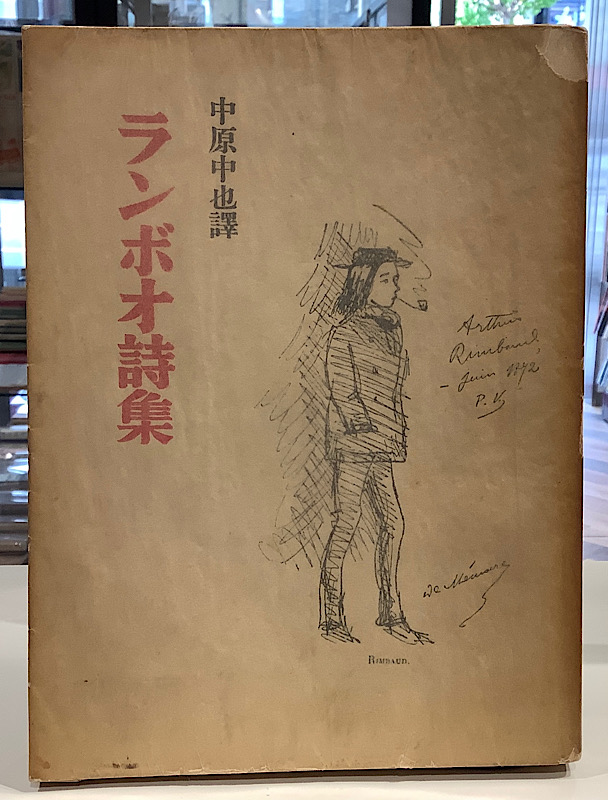 中原中也譯
ランボオ詩集
Arthur
Rimbaud,
- Juin 1872
P. V.
de Mémoire
RIMBAUD.